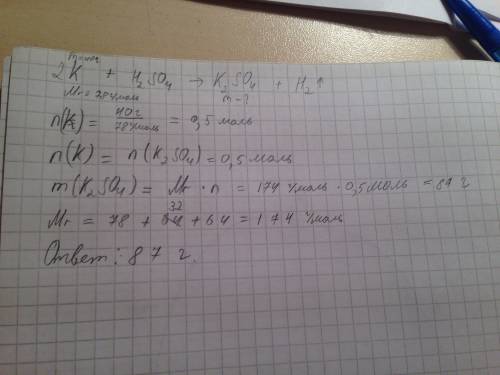 m=40г
2K + H₂SO₄ → K₂SO₄ + H₂↑
Mr = 78 г/моль m-?
n(K) = 40г / 78 г/моль = 0,5 моль
n(K) = n(K₂SO₄) = 0,5 моль
m(K₂SO₄) = Mr · n = 174 г/моль · 0,5 моль = 87 г
Mr = 78 + 32 + 64 = 174 г/моль
Ответ: 87 г.